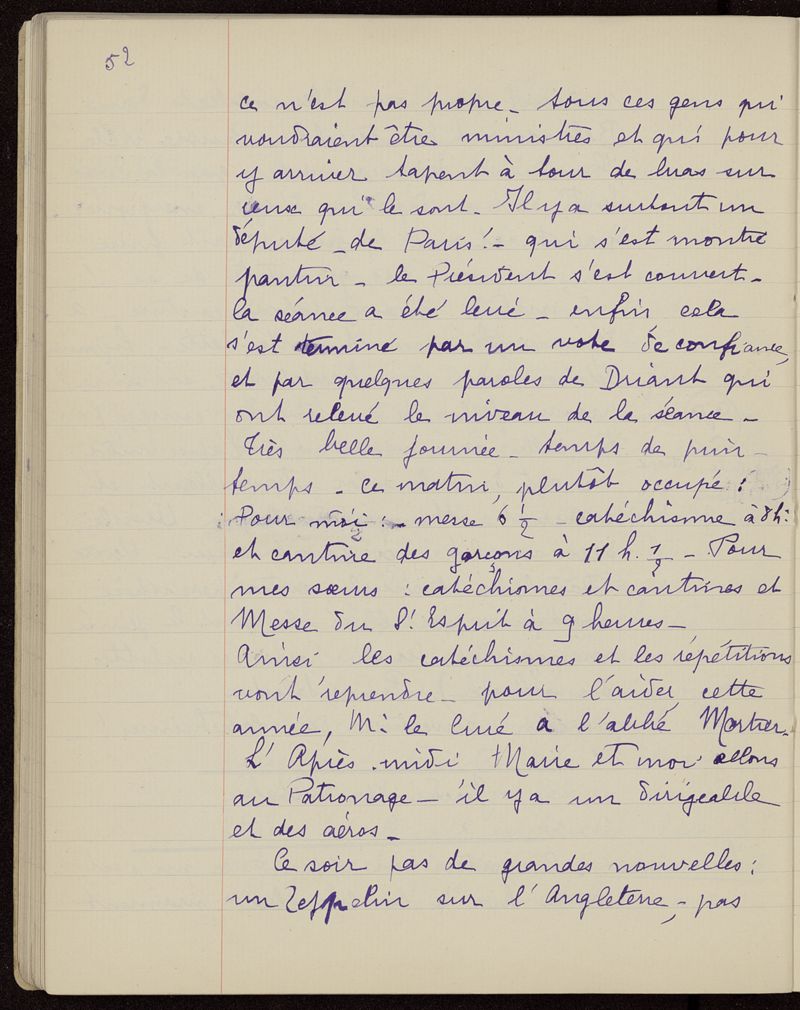 52
ce n'est pas propre - tous ces gens qui
voudraient être ministres et qui pour
y arriver tapent à tour de bras sur
ceux qui le sont. Il y a surtout un
député - de Paris! - qui s'est montré
pantin - le Président s'est couvert -
la séance a été levé - enfin cela
s'est terminé par un vote de confiance,
et par quelques paroles de Driant qui
ont relevé le niveau de la séance -
Très belle journée - temps de prin-
temps - ce matin, plutôt occupé :
Pour moi : - messe 6 1/2 - catéchisme à 8 h 1/2
et cantine des garçons à 11 h. 1/2 - Pour
mes sœurs : catéchismes et cantines et
Messe du St. Esprit à 9 heures -
Ainsi les catéchismes et les répétitions
vont reprendre - pour l'aider cette
année, Mr le Curé a l'abbé Mortier.
L'Après-midi Marie et moi allons
au Patronage - il y a un dirigeable
et des aéros -
Ce soir pas de grandes nouvelles :
un Zeppelin sur l'Angleterre, pas